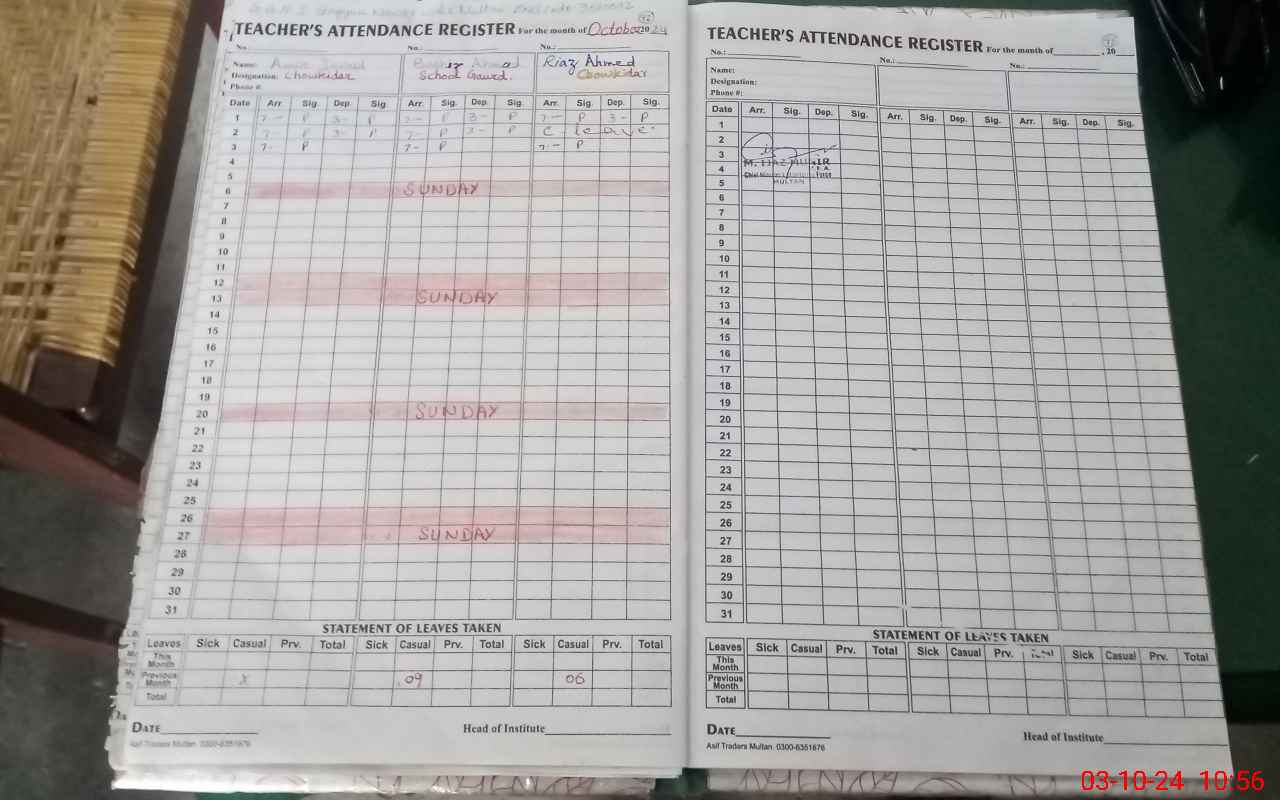 TEACHER'S ATTENDANCE REGISTER For the month of October 2024
No.: No.: No.:
Name: Riaz Ahmed
Designation: Chowkidar School Gaurd. Chowkidar
Phone #:
Date Arr. Sig. Dep. Sig. Arr. Sig. Dep. Sig. Arr. Sig. Dep. Sig.
1 7- P 3- P 7- P 3- P 7- P 3- P
2 7- P 3- P 7- P 3- P C leave
3 7- P 7- P 7- P
4
5
6 SUNDAY
7
8
9
10
11
12
13 SUNDAY
14
15
16
17
18
19
20 SUNDAY
21
22
23
24
25
26
27 SUNDAY
28
29
30
31
STATEMENT OF LEAVES TAKEN
Leaves Sick Casual Prv. Total Sick Casual Prv. Total Sick Casual Prv. Total
This Month
Previous Month X 09 06
Total
DATE Head of Institute
Asif Traders Multan. 0300-6351676
TEACHER'S ATTENDANCE REGISTER For the month of , 20
No.: No.: No.:
Name:
Designation:
Phone #:
Date Arr. Sig. Dep. Sig. Arr. Sig. Dep. Sig. Arr. Sig. Dep. Sig.
1
2
3
4
5 MULTAN
6
7
8
9
10
11
12
13
14
15
16
17
18
19
20
21
22
23
24
25
26
27
28
29
30
31
STATEMENT OF LEAVES TAKEN
Leaves Sick Casual Prv. Total Sick Casual Prv. Total Sick Casual Prv. Total
This Month
Previous Month
Total
DATE Head of Institute
Asif Traders Multan. 0300-6351676
03-10-24 10:56